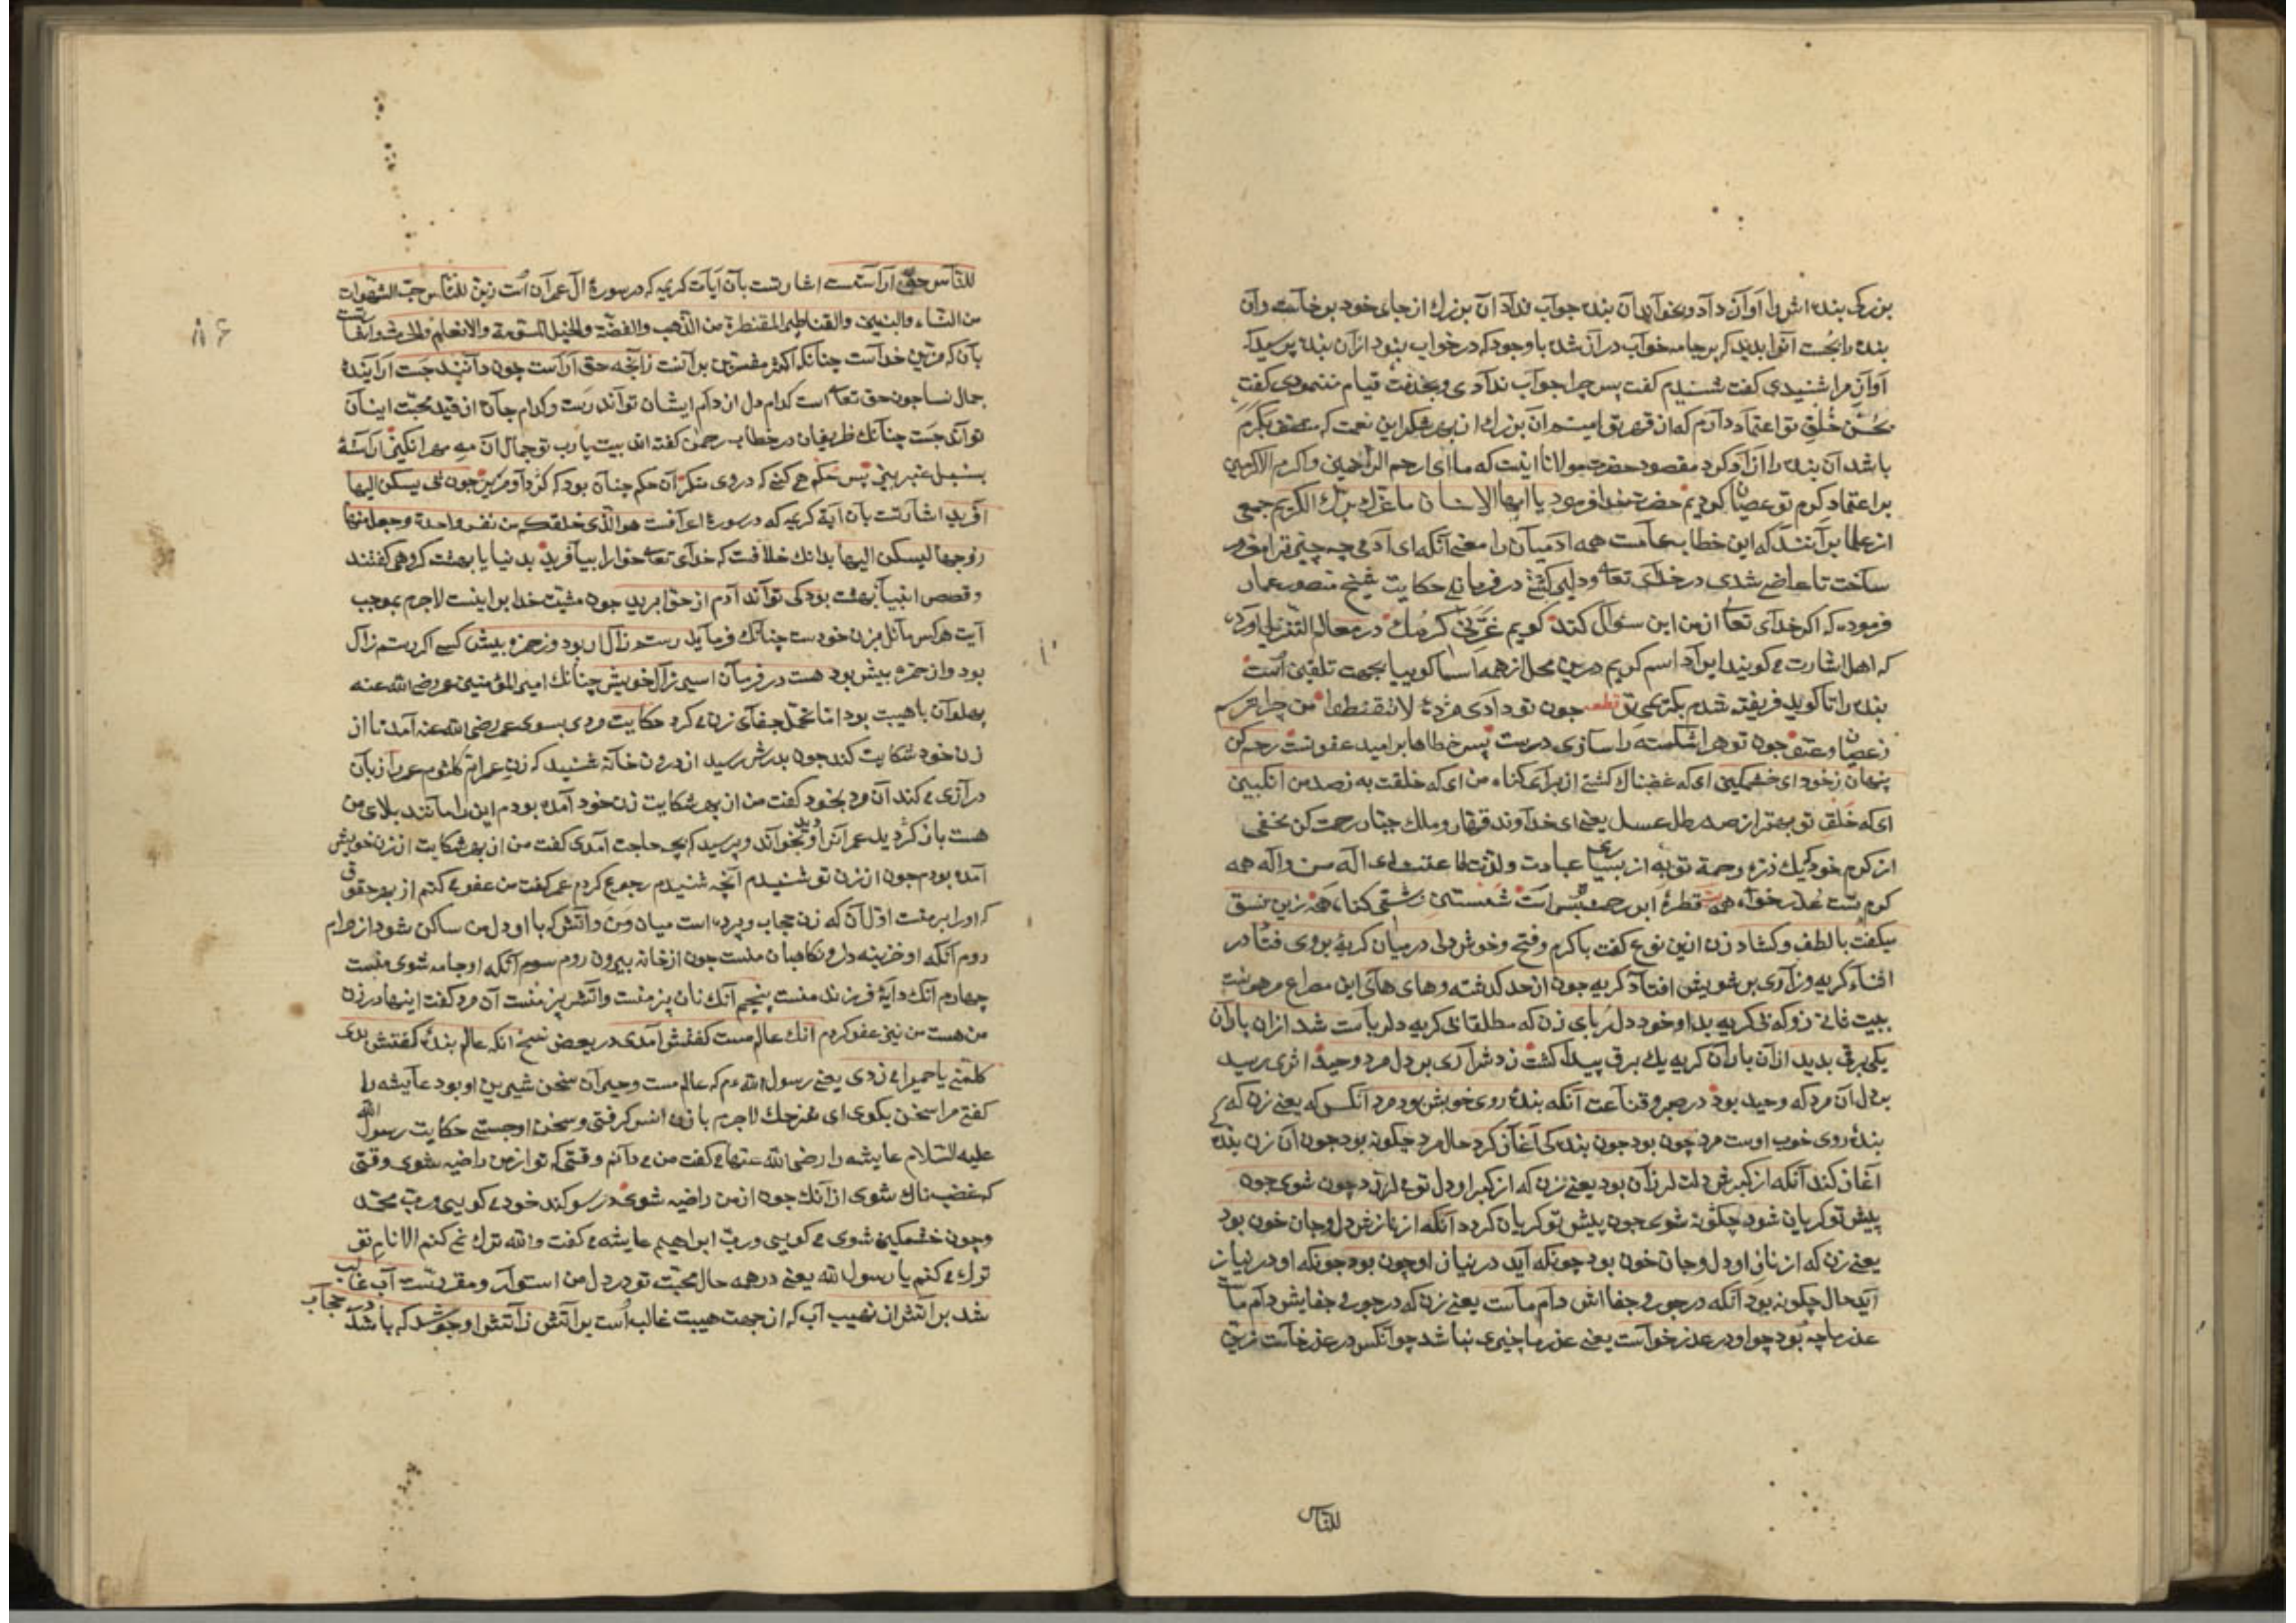 بزرگی بنده اش را آواز داد و بخواند آن بنده جواب نداد آن بزرک از جای خود برخاست و آن
بنده را بجست آنرا بدید که بر جامه خواب دراز شده با وجود که در خواب نبود از آن بنده پرسید که
آواز مرا شنیدی کفت شنیدم کفت پس چرا جواب ندادی و بخدمت قیام ننمودی کفت
بحسن خلق تو اعتماد دارم که از قهر تو ایمنم آن بزرک از بهر شکر این نعمت که
باشد آن بنده را آزاد کرد مقصود حضرت مولانا اینست که ما ای ارحم الراحمین و اکرم الاکرمین
بر اعتماد کرم تو عصیان کردیم حضرت خدا فرمود یا ایها الانسان ما غرک بربک الکریم جمعی
از علما برآنند که این خطاب عامست همه آدمیان را معنی آنکه ای آدمی چه چیز ترا مغرور
ساخت تا عاصی شدی در خدای تعالی و دلیر کشتی در فرمان وی حکایت شیخ منصور عمار
فرموده که اکر خدای تعالی از من این سؤال کند کویم غرنی کرمک در معالم التنزیل آورده
که اهل اشارت می کویند ایراد اسم کریم درین محل از همه اسما کوییا بجهت تلقین است
بنده را تا کوید فریفته شدم بکریمی تو قطعه چون تو دادی مژده لا تقنطوا من چرا ترسم
ز عصیان و عتو چون تو هر اشکسته را سازی درست پس خطاها بر امید عفو تست رحم کن
پنهان ز خود ای خشمکین ای که غضبناک کشتی از برای کناه من ای که خلقت به ز صد من انکبین
ای که خلق تو بهتر از صد رطل عسل یعنی ای خداوند قهار و ملک جبار رحمت کن مخفی
از کرم خود یک ذره رحمة تو به از بسیاری عبادت
کرم تست عذر خواه همه قطره ابر رحمتت بس است شستن زشتی کناه همه زین نسق
میکفت با لطف و کشاد زن ازین نوع کفت با کرم و فتح و خوش دلی در میان کریه بر وی فتاد در
اثناء کریه و زاری بر شویش افتاد کریه چون از حد کذشته و های های این مصراع مرهونست
ببیت ثانی زو که بی کریه بد او خود دلربای زن که مطلقا بی کریه دلرباست شد از آن باران
یکی برقی بدید از آن باران کریه یک برق پیدا کشت زد شراری بر دل مرد وحید اثری رسید
بر دل آن مرد که وحید بود در صبر و قناعت آنکه بنده روی خوبش بود مرد آنکس که یعنی زن که
بنده روی خوب اوست مرد چون بود چون بندکی آغاز کرد حال مرد چکونه بود چون آن زن بندکی
آغاز کند آنکه از کبرش دلت لرزان بود یعنی زن که از کبر او دل تو می لرزد چون شوی چون
پیش تو کریان شود چکونه شوی چون پیش تو کریان کردد آنکه از نازش دل و جان خون بود
یعنی زن که از ناز او دل و جان خون بود چونکه آید در نیاز او چون بود چونکه او در نیاز
آید حال چکونه بود آنکه در جور و جفااش دام ماست یعنی زن که در جور و جفایش دام ماست
عذر ما چه بود چو او در عذر خواست یعنی عذر ما چیزی نباشد چو آنکس در عذر خاست زین
للناس
للناس حق آراستست اشارتست بآن آیات کریمه که در سورۀ آل عمران است زین للناس حب الشهوات
من النساء والبنین والقناطیر المقنطرة من الذهب والفضة والخیل المسومة والانعام والحرث
بآن که مزین خداست چنانکه اکثر مفسرین برآنست زانچه حق آراست چون دانند جست آراینده
جمال نسا چون حق تعالی است کدام دل از دام ایشان تواند رست و کدام جان از قید محبت اینان
تواند جست چنانک ظریفان در خطاب رحمن کفته اند بیت یا رب تو جمال آن مه مهر انکیز آراسته
بسنبل عنبر بیز پس حکم می کنی که در وی منکر آن حکم چنان بود که کژدار و مریز چون پی یسکن الیها
آفرید اشارتست بآن آیة کریمه که در سورۀ اعرافست هو الذی خلقکم من نفس واحدة وجعل منها
زوجها لیسکن الیها بدانک خلافست که خدای تعالی حوا را بیافرید بدنیا یا بهشت کروهی کفتند
و قصص انبیا بهشت بود کی تواند آدم از حوا برید چون مشیت خدا بر اینست لاجرم بموجب
آیت هر کس مائل بزن خودست چنانک فرماید رستم زال ار بود وز حمزه بیش کسی اکر رستم زال
بود و از حمزه بیش بود هست در فرمان اسیر زال خویش چنانک امیر المؤمنین عمر رضی الله عنه
پهلوان با هیبت بود اما تحمل جفای زن می کرد حکایت مردی بسوی عمر رضی الله عنه آمد تا از
زن خود شکایت کند چون بدرش رسید از درون خانه شنید که زن عمر ام کلثوم عمر را زبان
درازی می کند آن مرد بخود کفت من از بهر شکایت زن خود آمده بودم این را مانند بلای من
هست باز کردید عمر آنرا دید و بخواند و پرسید که بچه حاجت آمدی کفت من از بهر شکایت از زن خویش
آمده بودم چون از زن تو شنیدم آنچه شنیدم رجوع کردم عمر کفت من عفو می کنم از بهر حقوقی
که او را بر منست اول آن که زن حجاب و پرده است میان من و آتش که با او دل من ساکن شود از حرام
دوم آنکه او خزینه دار و نکاهبان منست چون از خانه بیرون روم سوم آنکه او جامه شوی منست
چهارم آنک دایۀ فرزند منست پنجم آنک نان پز منست و آتش پز منست آن مرد کفت اینها در زن
من هست من نیز عفو کردم آنک عالم مست کفتش آمدی در بعض نسخ آنکه عالم بنده کفتش بدی
کلمینی یا حمیرا می زدی یعنی رسول الله ءم که عالم مست و حیران سخن شیرین او بود عایشه را
کفتی مرا سخن بکوی ای سرخک لاجرم با زن انس کرفتی و سخن او جستی حکایت رسول الله
علیه السلام عایشه را رضی الله عنها می کفت من می دانم وقتی که تو از من راضیه شوی و وقتی
که غضبناک شوی از آنک چون از من راضیه شوی در سوکند خود می کویی و رب محمد
و چون خشمکین شوی می کویی و رب ابراهیم عایشه می کفت والله ترک نمی کنم الا نام تو
ترک می کنم یا رسول الله یعنی در همه حال محبت تو در دل من استوار و مقررست آب غالب
شد بر آتش از نهیب آب که از جهت هیبت غالب است بر آتش زآتش او جوشد که باشد در حجاب